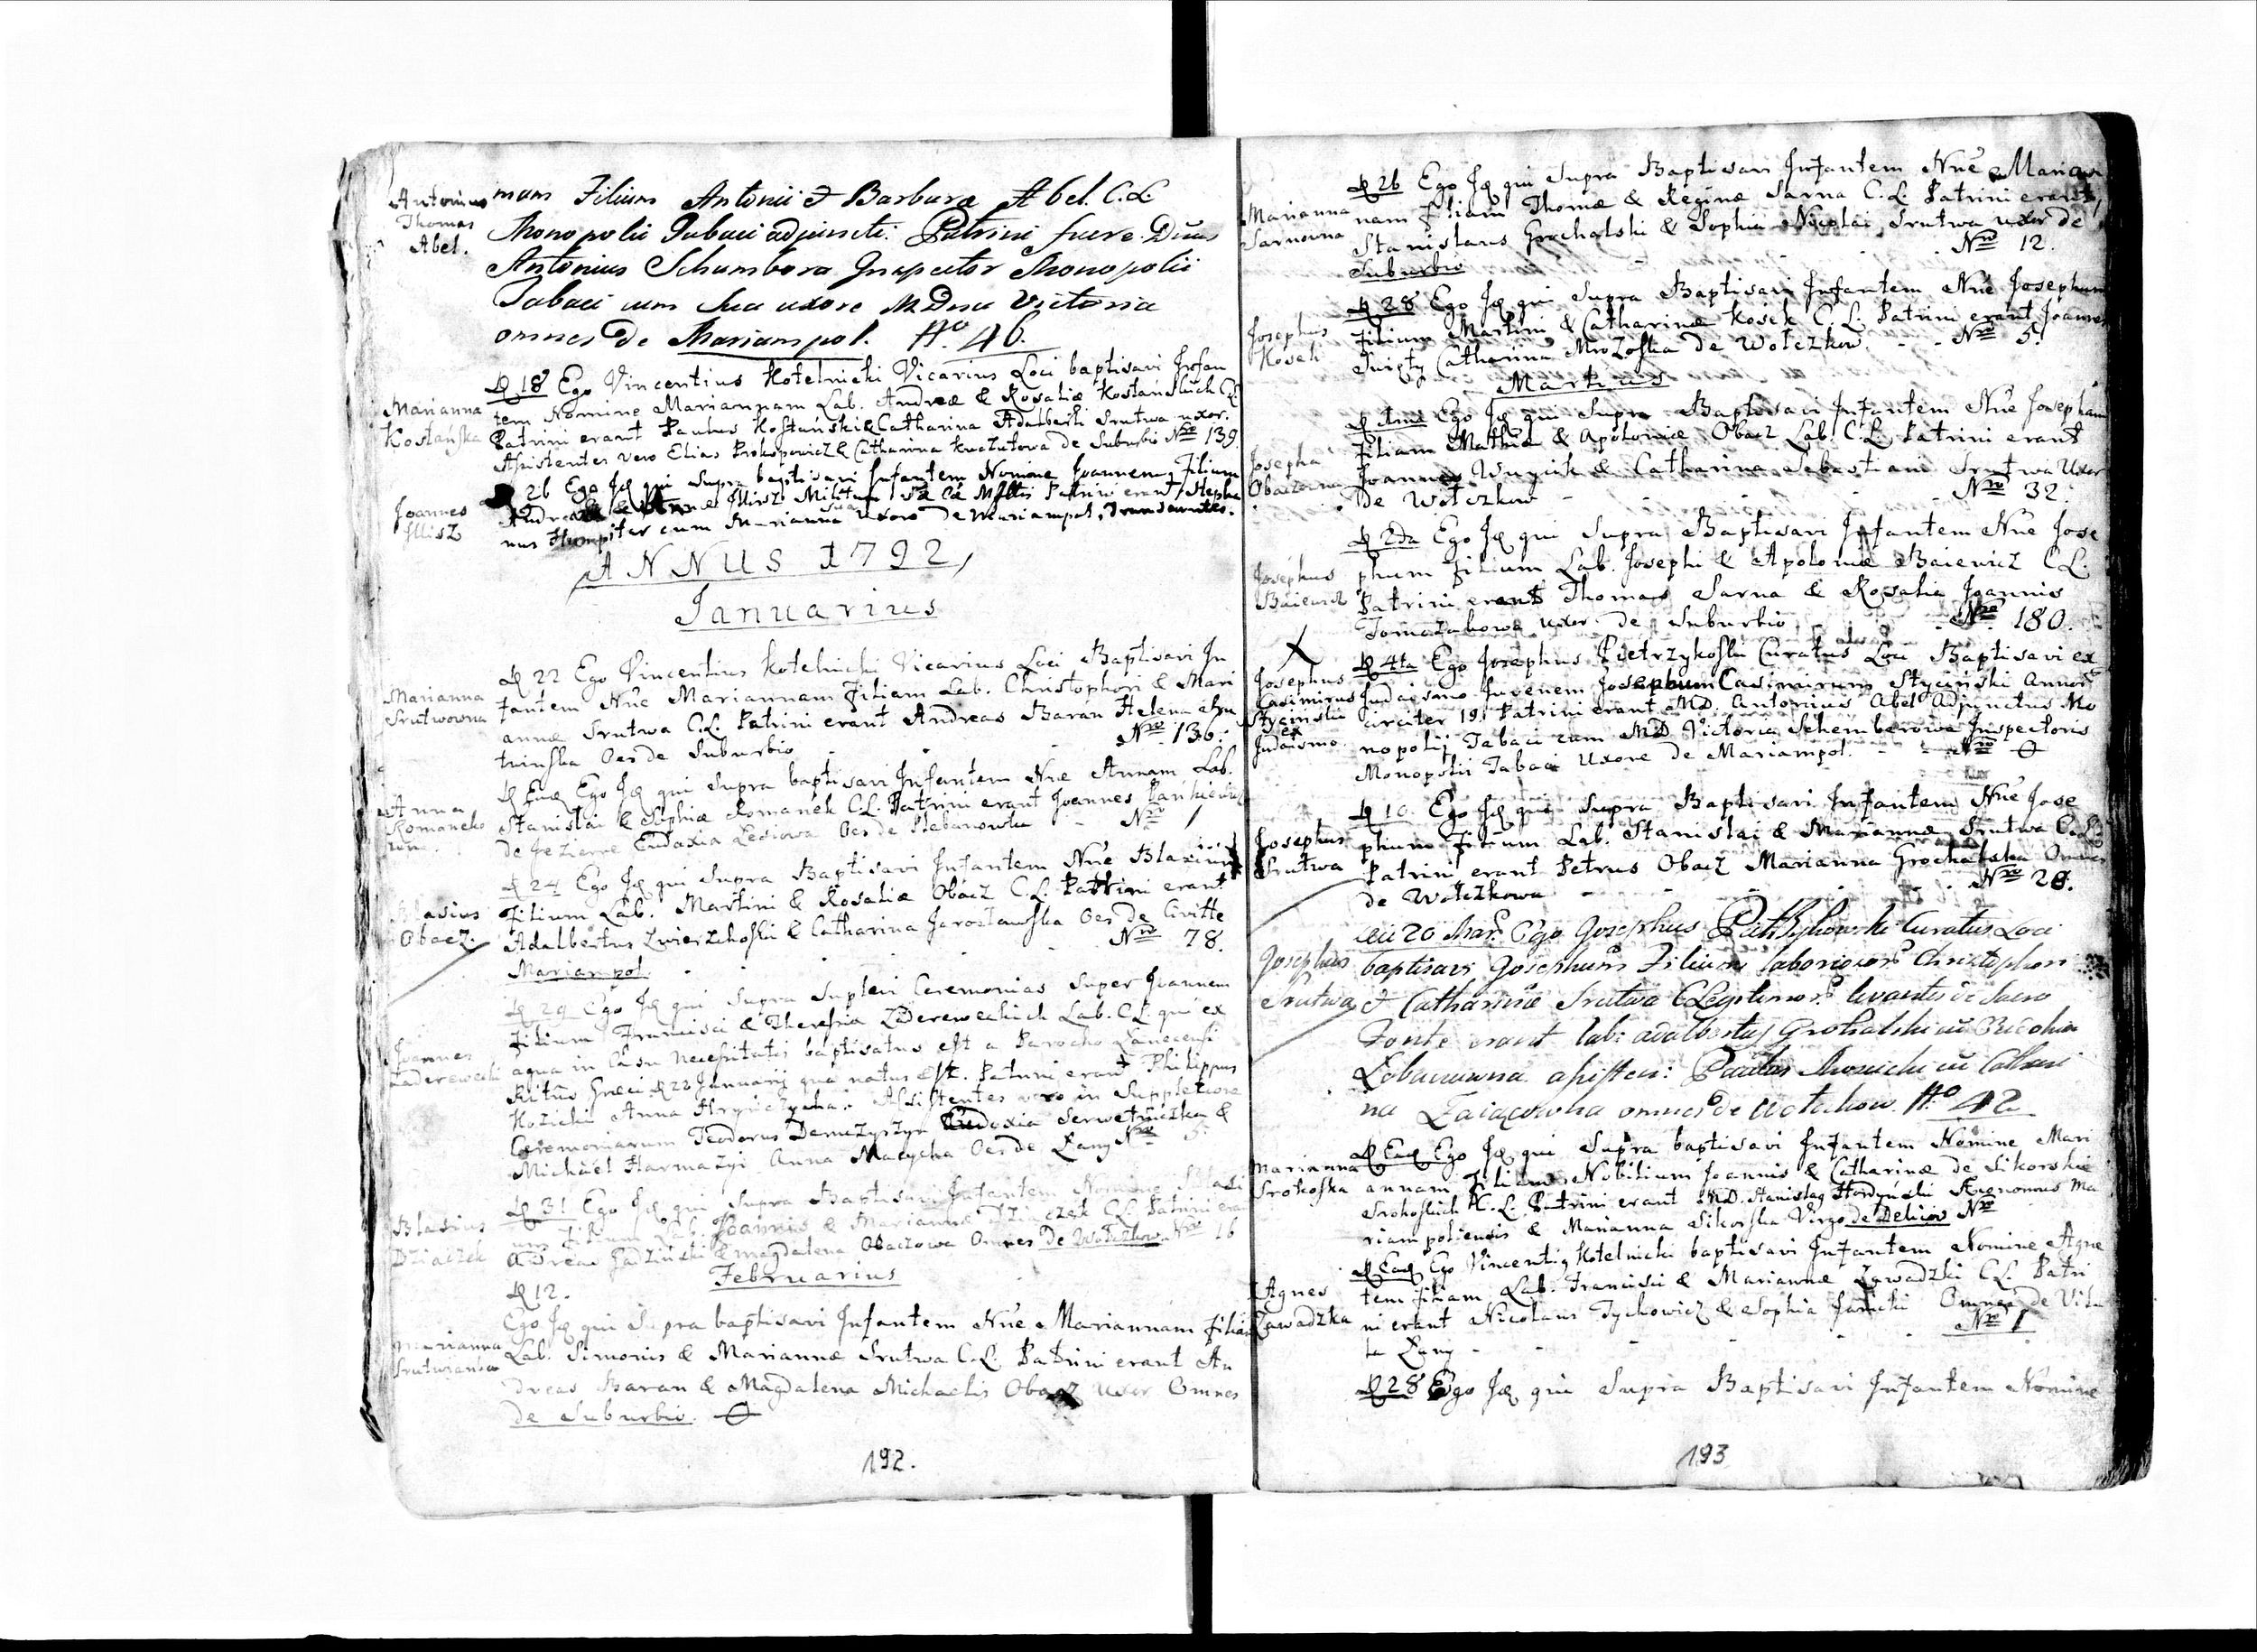 Antonius
Thomas
Abel.
mam Filium Antonii & Barbara Abel. C.L.
Monopolii Tabaci adjuncti. Patrini fuere Dnus
Antonius Schumbera Inspector Monopolii
Tabaci cum sua uxore M Dna Victoria
omnes de Mariampol. No 46.
Marianna
Kostańska
D 18 Ego Vincentius Kotelnicki Vicarius Loci baptisavi Infan
tem Nomine Mariannam Lab. Andreæ & Rosaliæ Kostańskich CL
Patrini erant Paulus Kostański & Catharina Adalberti Srutwa uxor.
Assistentes vero Elias Prokopowicz & Catharina de Suburbio Nro 139
Joannes
Illisz
26 Ego Id qui Supra baptisavi Infantem Nomine Joannem, Filium
Andreæ & Annæ Illisz Patrini erant Stepha
nus cum Marianna sua Uxore de Mariampol,
ANNUS 1792
Januarius
Marianna
Srutwowna
D 22 Ego Vincentius Kotelnicki Vicarius Loci Baptisavi In
fantem Nne Mariannam Filiam Lab. Christophori & Mari
annæ Srutwa C.L. Patrini erant Andreas Baran Helena
Oes de Suburbio - Nro 136.
Anna
Romanek
D Ead Ego Id qui Supra baptisavi Infantem Nne Annam Lab.
Stanislai & Sophiæ Romanek C.L. Patrini erant Joannes
de Jezierne Eudoxia Lesiowa Oes de Slebanowka - Nro 1
Blasius
Obacz.
D 24 Ego Id qui Supra Baptisavi Infantem Nne Blasium
Filium Lab. Martini & Rosaliæ Obacz C.L. Patrini erant
Adalbertus Zwierzchoski & Catharina Jarosławska Oes de Civitte
Mariampol. - Nro 78.
Joannes
Zderewecki
D 29 Ego Id qui Supra Suplevi Ceremonias Super Joannem
Filium Francisci & Theresiæ Zderewechich Lab. C.L. qui ex
aqua in Casu necessitatis baptisatus est a Parocho
Ritus Græci D 22 Januarij qua natus est. Patrini erant Philippus
Kozicki Anna Hryńczycha. Assistentes vero in Suppletione
Ceremoniarum Teodorus Eudoxia &
Michaël Harmazyi Anna Macycha Oes de Łany Nro 5.
Blasius
Dziaczek
D 31 Ego Id qui Supra Baptisavi Infantem Nomine Blasi
um Filium Lab. Joannis & Mariannæ Dziaczek C.L. Patrini erant
Andreas & Magdalena Obaczowa Omnes De Wołczkow Nro 16
Februarius
D 12.
Marianna
Ego Id qui Supra baptisavi Infantem Nne Mariannam Filiam
Lab. Simonis & Mariannæ Srutwa C.L. Patrini erant An
dreas Baran & Magdalena Michaelis Obacz Uxor Omnes
de Suburbio.
192.
Marianna
Sarnowna
D 26 Ego Id qui Supra Baptisavi Infantem Nne Marian
nam Filiam Thomæ & Reginæ Sarna C.L. Patrini erant
Stanislaus Grochalski & Sophia Nicolai Srutwa uxor de
Suburbio - Nro 12.
Josephus
Kosek
D 28 Ego Id qui Supra Baptisavi Infantem Nne Josephum
Filium Martini & Catharinæ Kosek C.L. Patrini erant Joannes
Swięty Catharina Mrozoska de Wołczkow. - Nro 5.
Martius
Josepha
Obaczowna
D 1ma Ego Id qui Supra Baptisavi Infantem Nne Josepham
Filiam Mathiæ & Apoloniæ Obacz Lab. C.L. Patrini erant
Joannes Wuycik & Catharina Sebastiani Srutwa Uxor
De Wołczkow - Nro 32.
Josephus
Baiewicz
D 2da Ego Id qui Supra Baptisavi Infantem Nne Jose
phum Filium Lab. Josephi & Apoloniæ Baiewicz C.L.
Patrini erant Thomas Sarna & Rosalia Joannis
uxor de Suburbio - Nro 180.
X
Josephus
Casimirus
Styciński
ex
Judaismo
D 4ta Ego Josephus Pietrzykoski Curatus Loci Baptisavi ex
Judaismo Juvenem Josephum Casimirum Styciński Annor
circiter 19. Patrini erant MD. Antonius Abel Adjunctus Mo
nopolij Tabaci cum MD Victoria Schemberowa Inspectoris
Monopolii Tabaci Uxore de Mariampol. - Nro
Josephus
Srutwa
D 10 Ego Id qui Supra Baptisavi Infantem Nne Jose
phum Filium Lab. Stanislai & Mariannæ Srutwa C.L.
Patrini erant Petrus Obacz Marianna Grochalska Omnes
de Wołczkowa - Nro 28.
Josephus
Srutwa
Die 20 Mar. Ego Josephus Pietrzykowski Curatus Loci
baptisavi Josephum Filium laboriosor Christophori
& Catharinæ Srutwa CLegitimor. levantes de Sacro
Fonte erant lab: adalbertus Grohalski cu
assisten: Paulus cu Cathari
na Zaiącowna omnes de Wotschow. No 42
Marianna
Srokoska
D Ead Ego Id qui Supra baptisavi Infantem Nomine Mari
annam Filiam Nobilium Joannis & Catharinæ de Sikorskie
Srokoskich C.L. Patrini erant MD. Stanislaus Hordyński Œconomus Ma
riampoliensis & Marianna Sikorska Virgo de Deliow Nro
Agnes
Zawadzka
D Ead Ego Vincentius Kotelnicki baptisavi Infantem Nomine Agne
tem filiam Lab. Francisci & Mariannæ Zawadzki C.L. Patri
ni erant Nicolaus Tychowicz & Sophia Janicki Omnes de Villa
Łany - Nro 1
D 28 Ego Id qui Supra Baptisavi Infantem Nomine
193